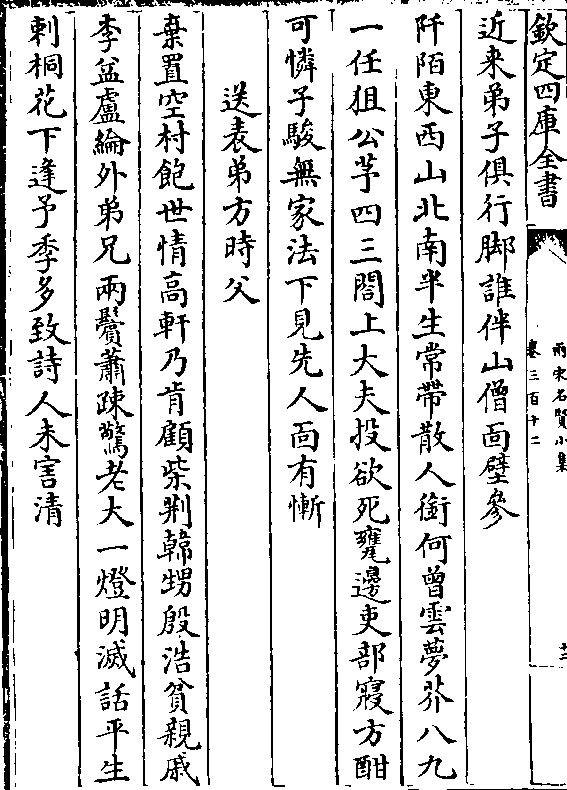 欽定四庫全書
兩宋名賢小集
卷三百十二
十二
近来弟子俱行脚誰伴山僧面壁參
阡陌東西山北南半生常帶散人銜何曾雲夢芥八九
一任狙公芧四三閣上大夫投欲死甕邊吏部寢方酣
可憐子駿無家法下見先人面有慚
送表弟方時父
棄置空村飽世情高軒乃肯顧柴荆韓甥殷浩貧親戚
李益盧綸外弟兄兩鬢蕭踈驚老大一燈明滅話平生
刺桐花下逢予季多致詩人未害清